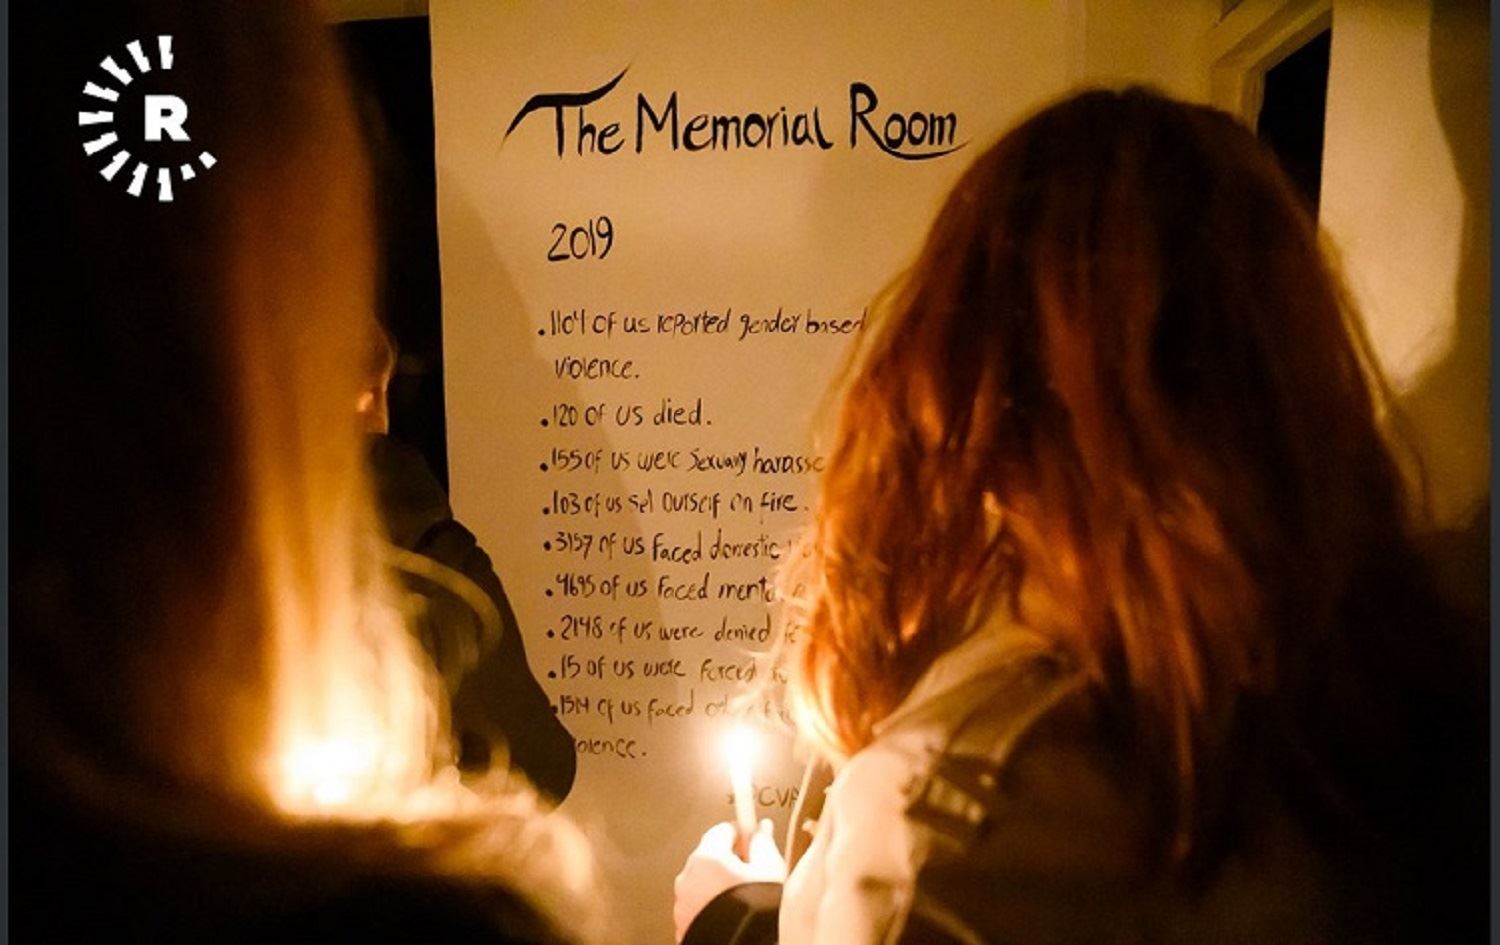 R
The Memorial Room
2019
.1104 of us reported gender based
violence.
.120 of us died.
.155 of us were sexualy harasse
.103 of us set ourself on fire.
.3157 of us faced domestic
.4695 of us faced
.2148 of us were denied
.15 of us were forced
of us faced
olence.